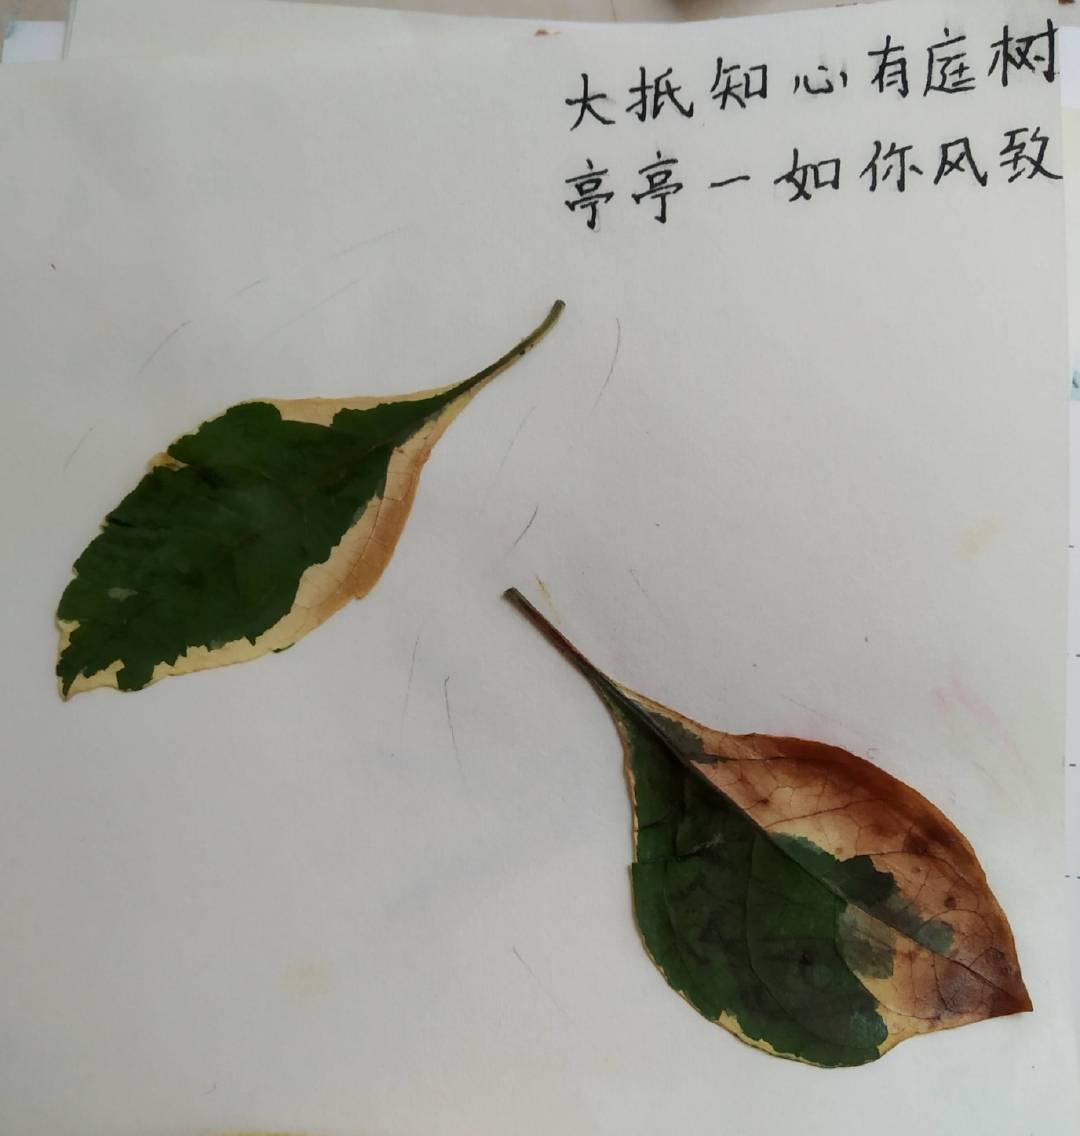 大抵知心有庭树
亭亭一如你风致